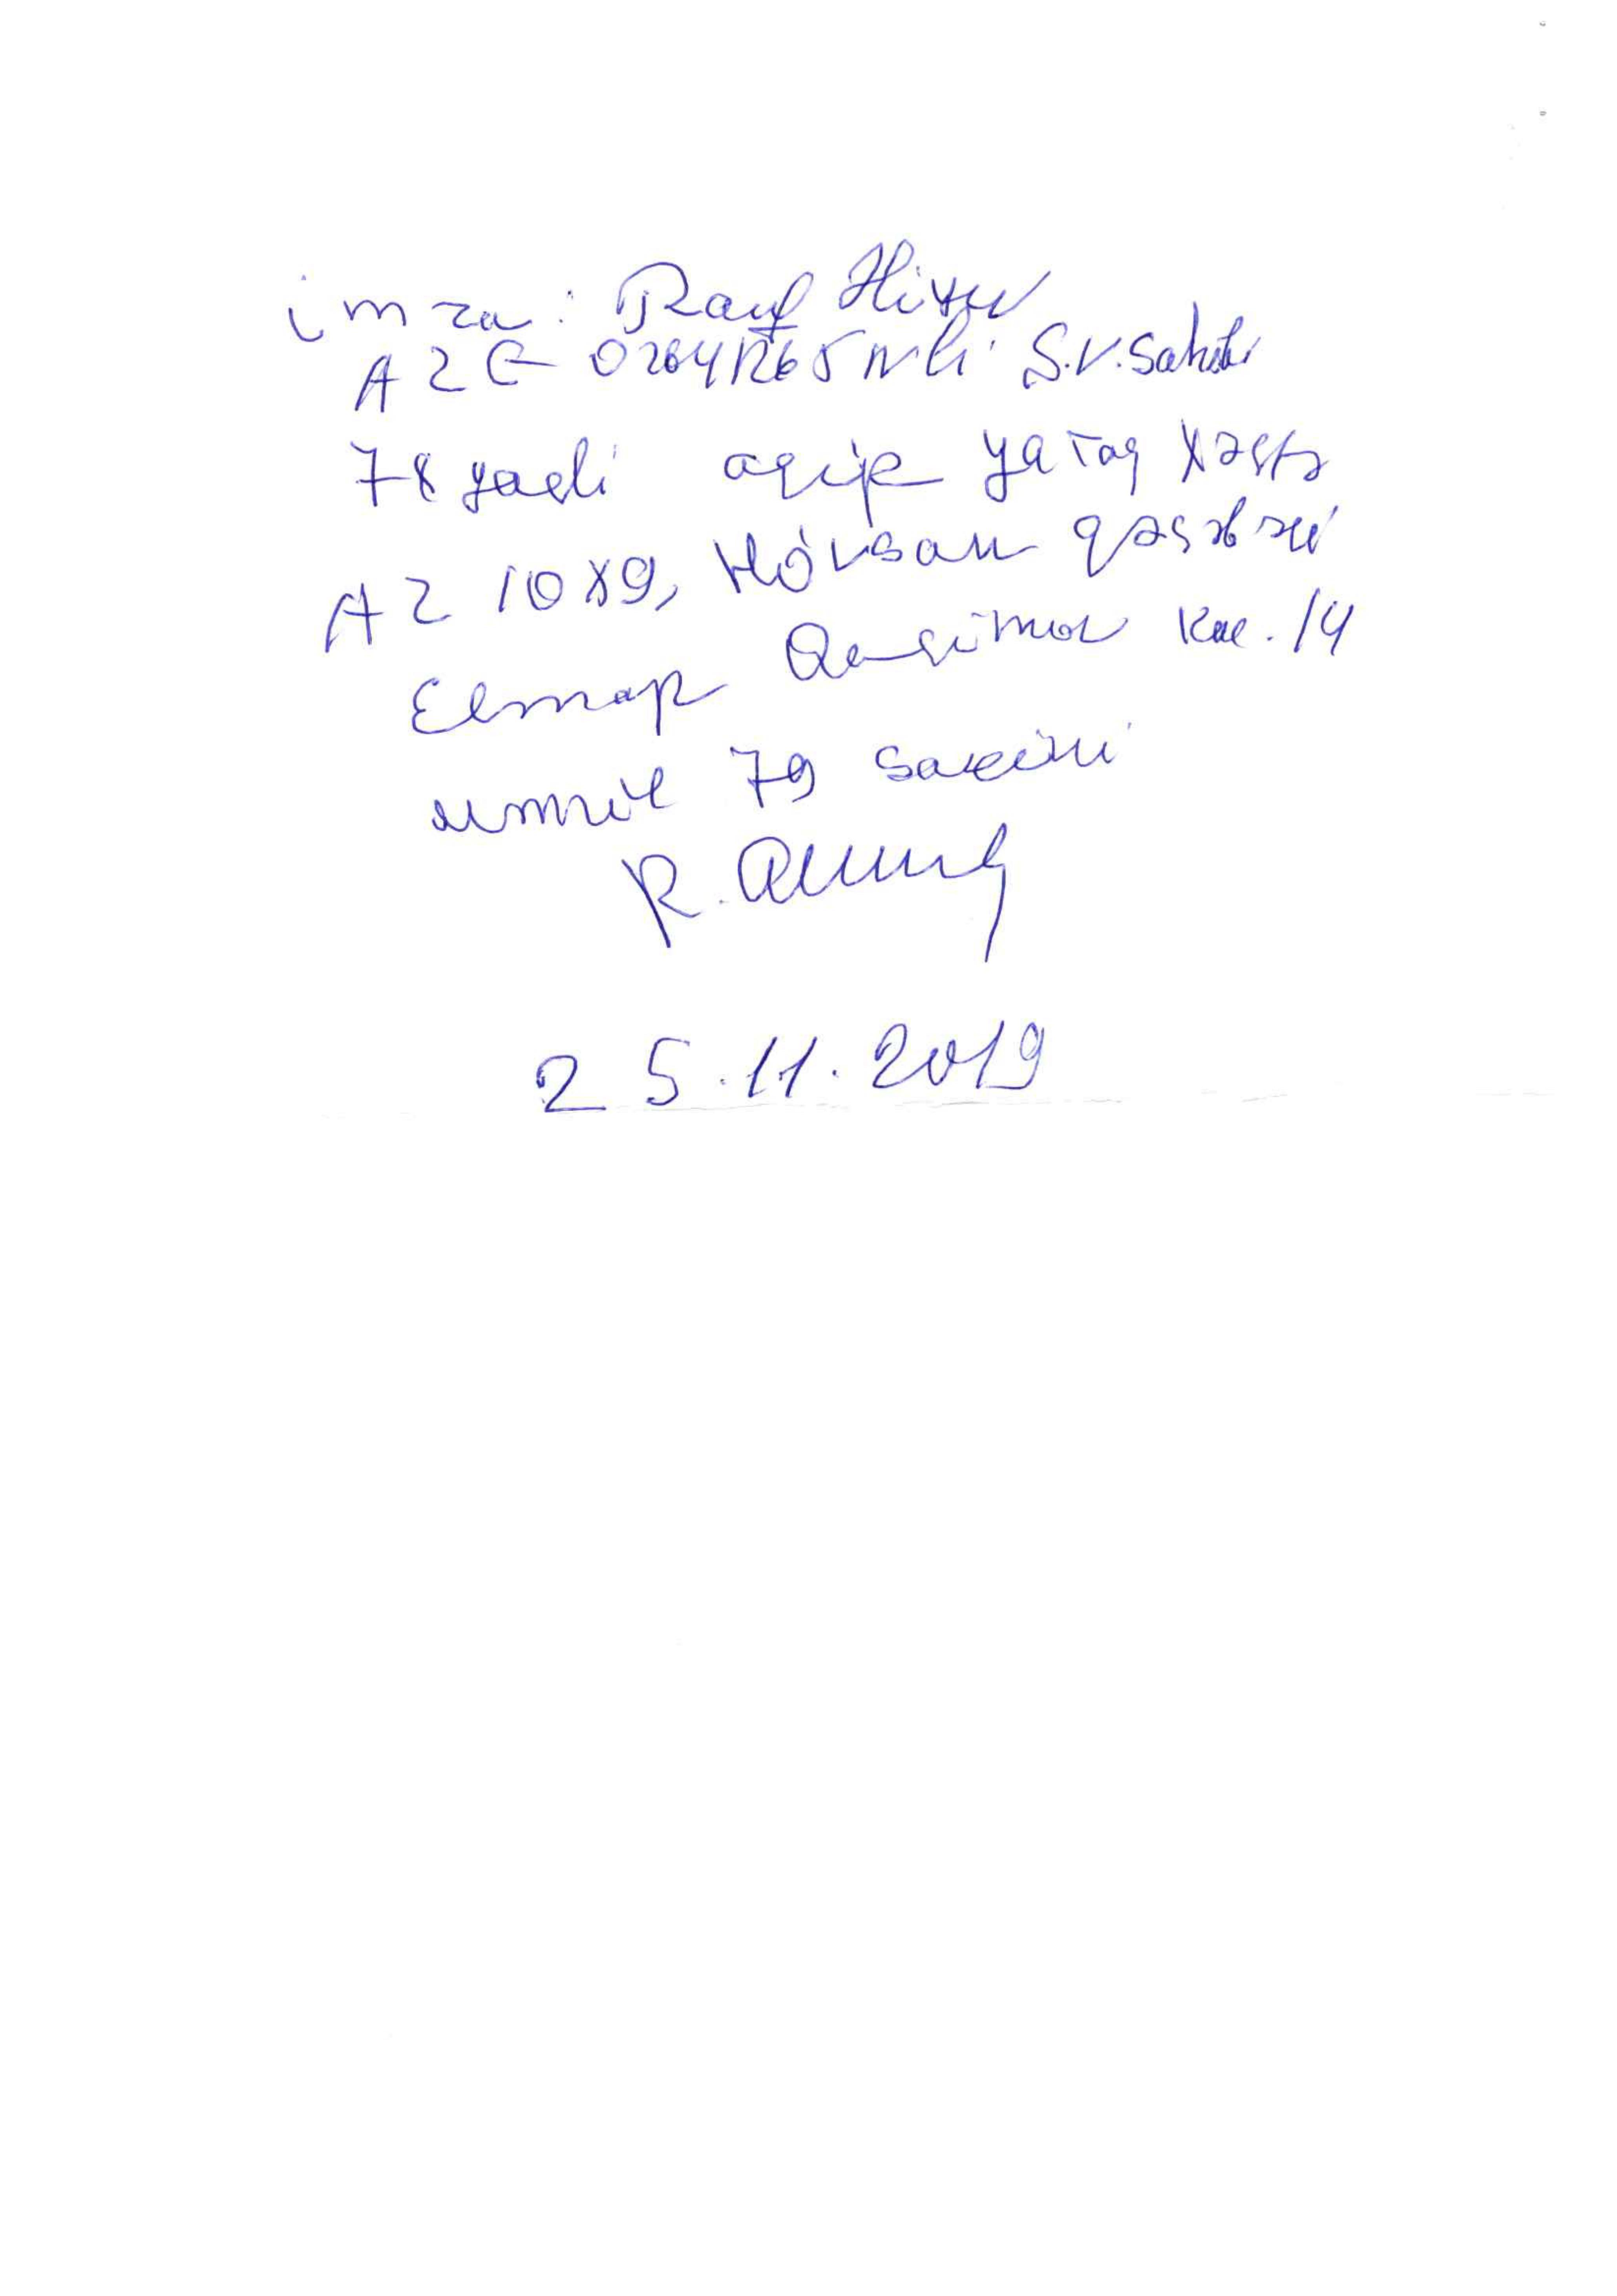 imza: Rauf
AZE 02641265 Nli S.V. Sahibi
78 yaşli ağir yataq Xəstə
AZ 1089, Hövsan qəsəbəsi
Elmar Qasimov küç. 14
mənzil 79 sakini
R.
25.11.2019